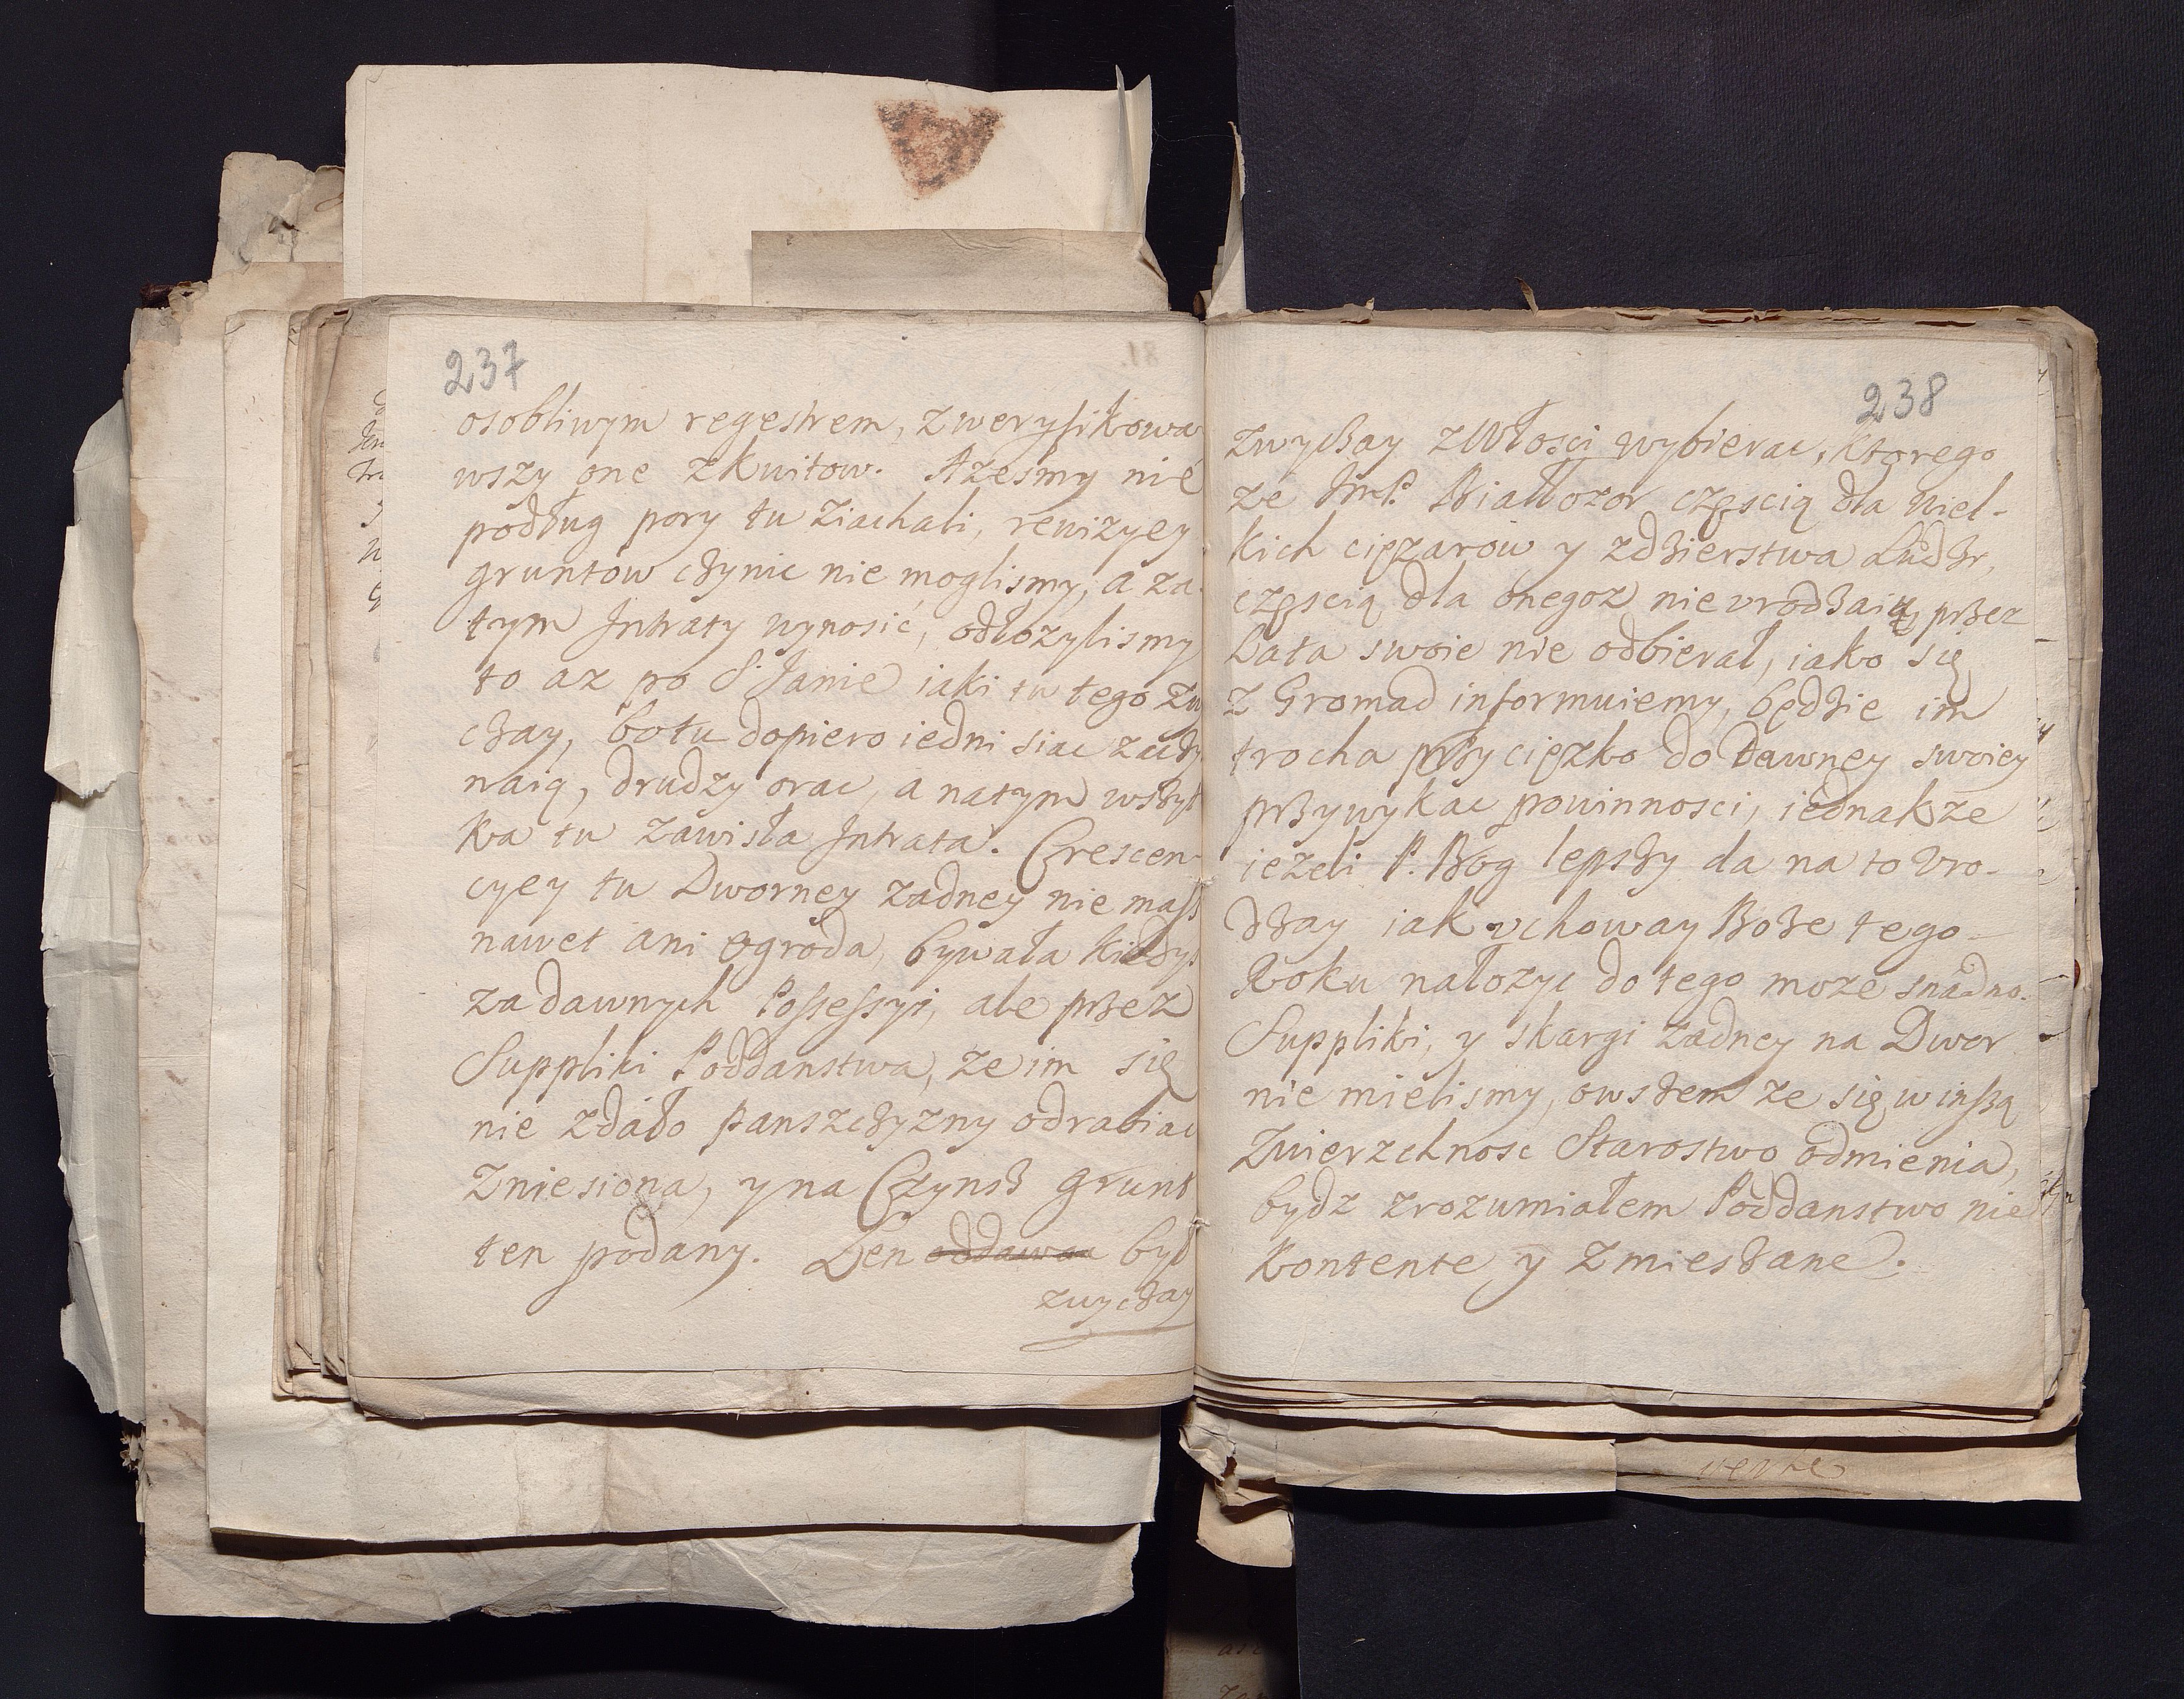 237
osobliwym regestrem, zweryfikowa
wszy one zkwitow. Azesmy nie
podług pory tu ziachali, rewizyey
gruntow czynic nie moglismy, a za
tym Intraty wynosić, odłozylismy
to az po S Janie iaki tu tego zw
czay, botu dopiero iedni siac zaczy
naią, drudzy orac, a natym wszyt
ka tu zawisła Intrata. Crescen
cyey tu Dworney zadney nie masz
nawet ani ogroda, bywała kiedys
za dawnych Possessyi, ale przez
Suppliki Poddanstwa, ze im się
nie zdało panszczyzny odrabiac
zniesiona, y na Czynsz grunt
ten podany. Len oddawac byl
zwyczay
238
zwyczay zWłosci wybierac, ktorego
ze ImP. Białłozor częscią dla wiel-
kich cięzarow y zdzierstwa Ludzi,
częscią dla onegoz nievrodzaią, przez
Lata swoie nie odbierał, iako się
z Gromad informuiemy, będzie im
trocha przycięzko do Dawney swoiey
przywykac powinnosci, iednakze
iezeli P. Bog lepszy da na to vro-
dzay iak vchoway Boze tego
Roku nałozyc do tego moze snadno.
Suppliki, y skargi zadney na Dwor
nie mielismy, owszem ze się w inszą
Zwierzchnosc Starostwo odmienia,
bydz zrozumiałem Poddanstwo nie
kontente y zmieszane.
verte